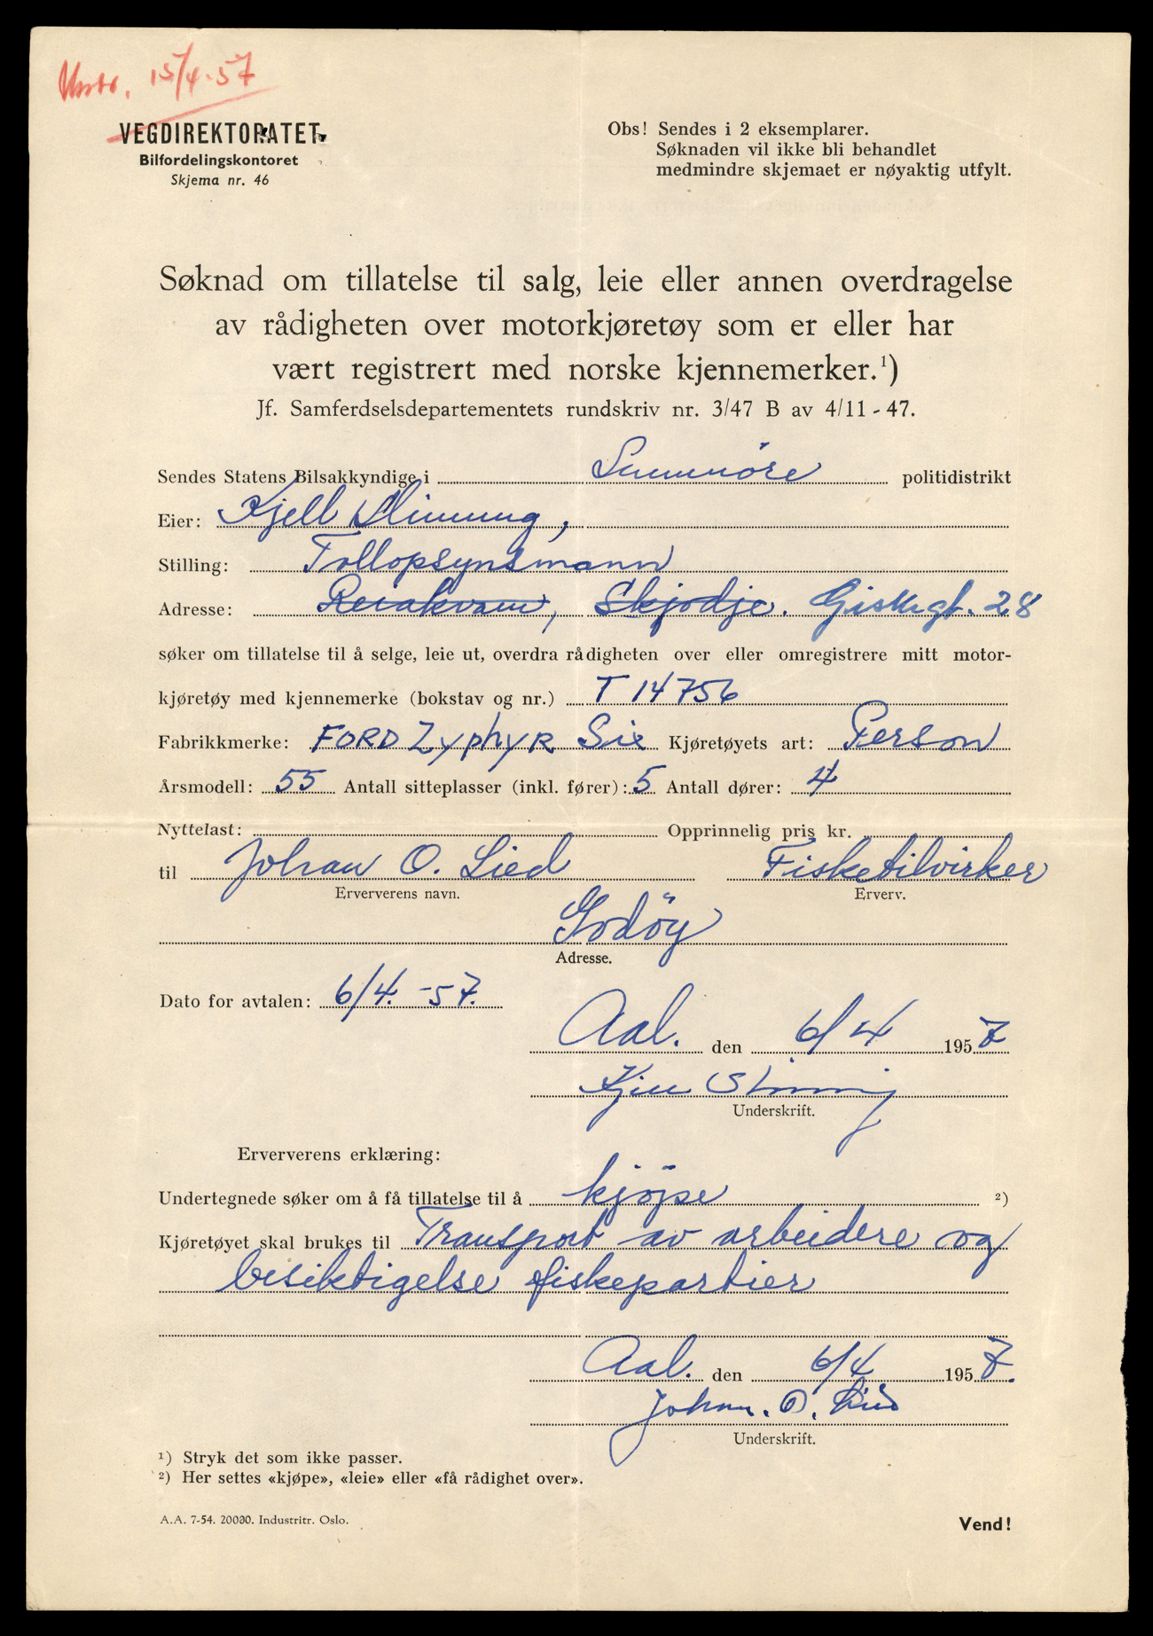 15/4-57
VEGDIREKTORATET
Bilfordelingskontoret
Skjema nr. 46
Obs! Sendes i 2 eksemplarer.
Søknaden vil ikke bli behandlet
medmindre skjemaet er nøyaktig utfylt.
Søknad om tillatelse til salg, leie eller annen overdragelse
av rådigheten over motorkjøretøy som er eller har
vært registrert med norske kjennemerker.¹)
Jf. Samferdselsdepartementets rundskriv nr. 3/47 B av 4/11-47.
Sendes Statens Bilsakkyndige i Sunnmöre politidistrikt
Eier: Kjell Slinning,
Stilling: Tollopsynsmann
Adresse: Skjodje. Giskegt. 28
søker om tillatelse til å selge, leie ut, overdra rådigheten over eller omregistrere mitt motor-
kjøretøy med kjennemerke (bokstav og nr.) T 14756
Fabrikkmerke: FORD Zyphyr Six Kjøretøyets art: Person
Årsmodell: 55 Antall sitteplasser (inkl. fører): 5 Antall dører: 4
Nyttelast: Opprinnelig pris kr.
til Johan O. Lied Fisketilvirker
Erververens navn. Erverv.
Godöy
Adresse.
Dato for avtalen: 6/4.-57.
Aal. den 6/4 1957
Kjell Slinning
Underskrift.
Erververens erklæring:
Undertegnede søker om å få tillatelse til å kjöpe ²)
Kjøretøyet skal brukes til Transport av arbeidere og
besiktigelse fiskepartier
Aal. den 6/4 1957.
Johan. O. Lied
Underskrift.
¹) Stryk det som ikke passer.
²) Her settes «kjøpe», «leie» eller «få rådighet over».
A.A. 7-54. 20000. Industritr. Oslo.
Vend!